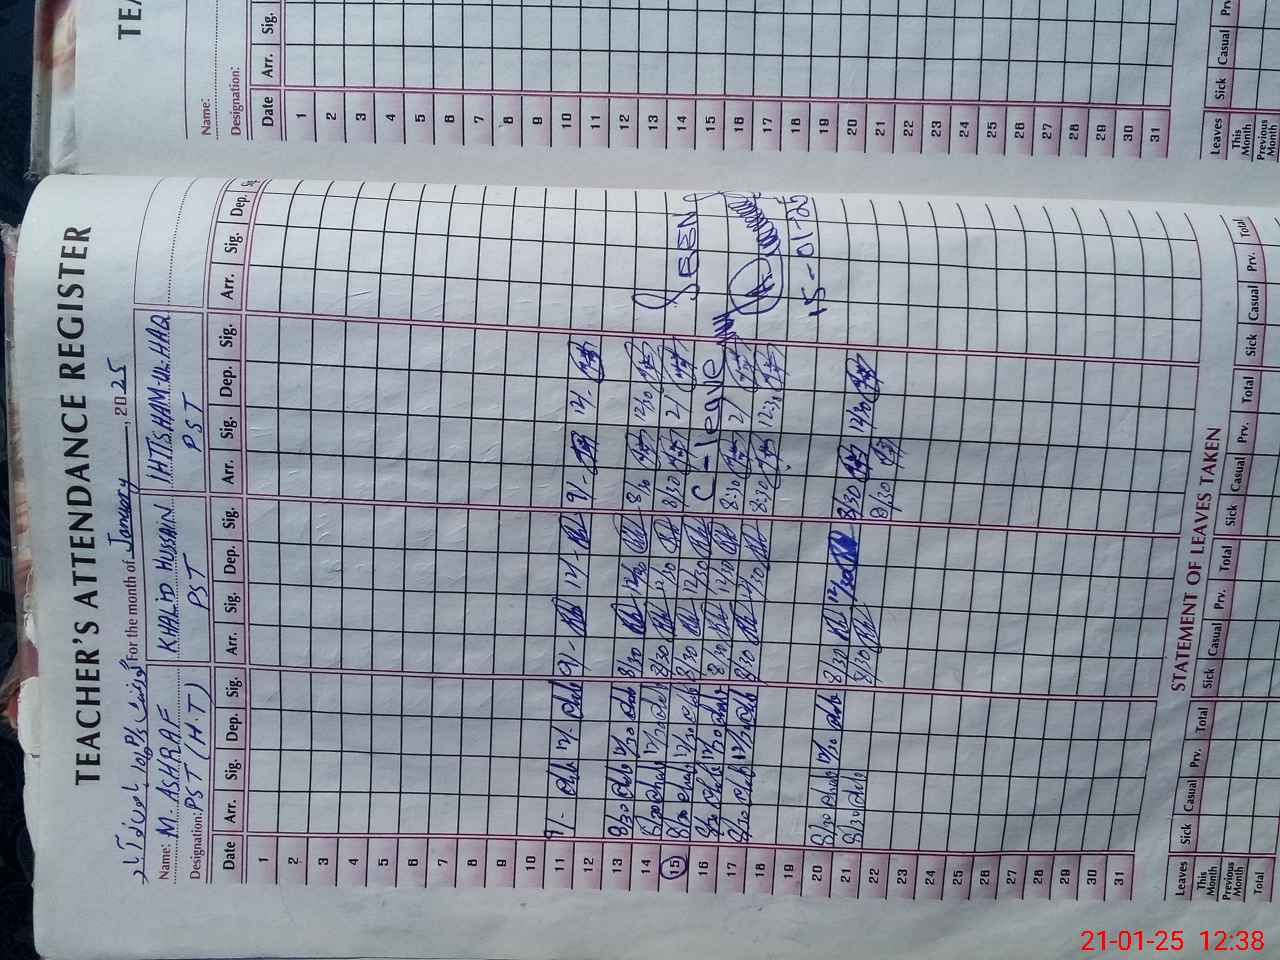 TEACHER'S ATTENDANCE REGISTER
For the month of January, 2025
Name: M. ASHRAF KHALID HUSSAIN IHTISHAM-UL-HAQ
Designation: PST (H.T) PST PST
Date Arr. Sig. Dep. Sig. Arr. Sig. Dep. Sig. Arr. Sig. Dep. Sig. Arr. Sig. Dep.
1
2
3
4
5
6
7
8
9
10
11 9/- 12/- 9/- 12/- 9/- 12/-
12
13 8/30 12/30 8/30 12/30 8/30 12/30
14 8/30 12/30 8/30 12/30 8/30 2/ SEEN
15 8/30 12/30 8/30 12/30 C-leave
16 8/30 12/30 8/30 12/30 8:30 2/
17 8/30 12/30 8/30 12/30 8:30 12:30
18
19 15-01-25
20 8/30 12/30 8/30 12/30 8/30 12/30
21 8/30 8/30 8/30
22
23
24
25
26
27
28
29
30
31
STATEMENT OF LEAVES TAKEN
Leaves Sick Casual Prv. Total Sick Casual Prv. Total Sick Casual Prv. Total Sick Casual Prv. Total
This Month
Previous Month
Total
TEA
Name:
Designation:
Date Arr. Sig.
1
2
3
4
5
6
7
8
9
10
11
12
13
14
15
16
17
18
19
20
21
22
23
24
25
26
27
28
29
30
31
Leaves Sick Casual Prv
This Month
Previous Month
21-01-25 12:38